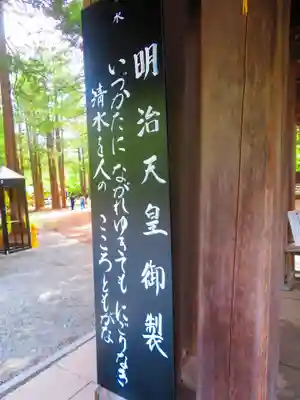 水
明治天皇御製
いづかたにながれゆきてもにごりなき
清水を人のこころともがな